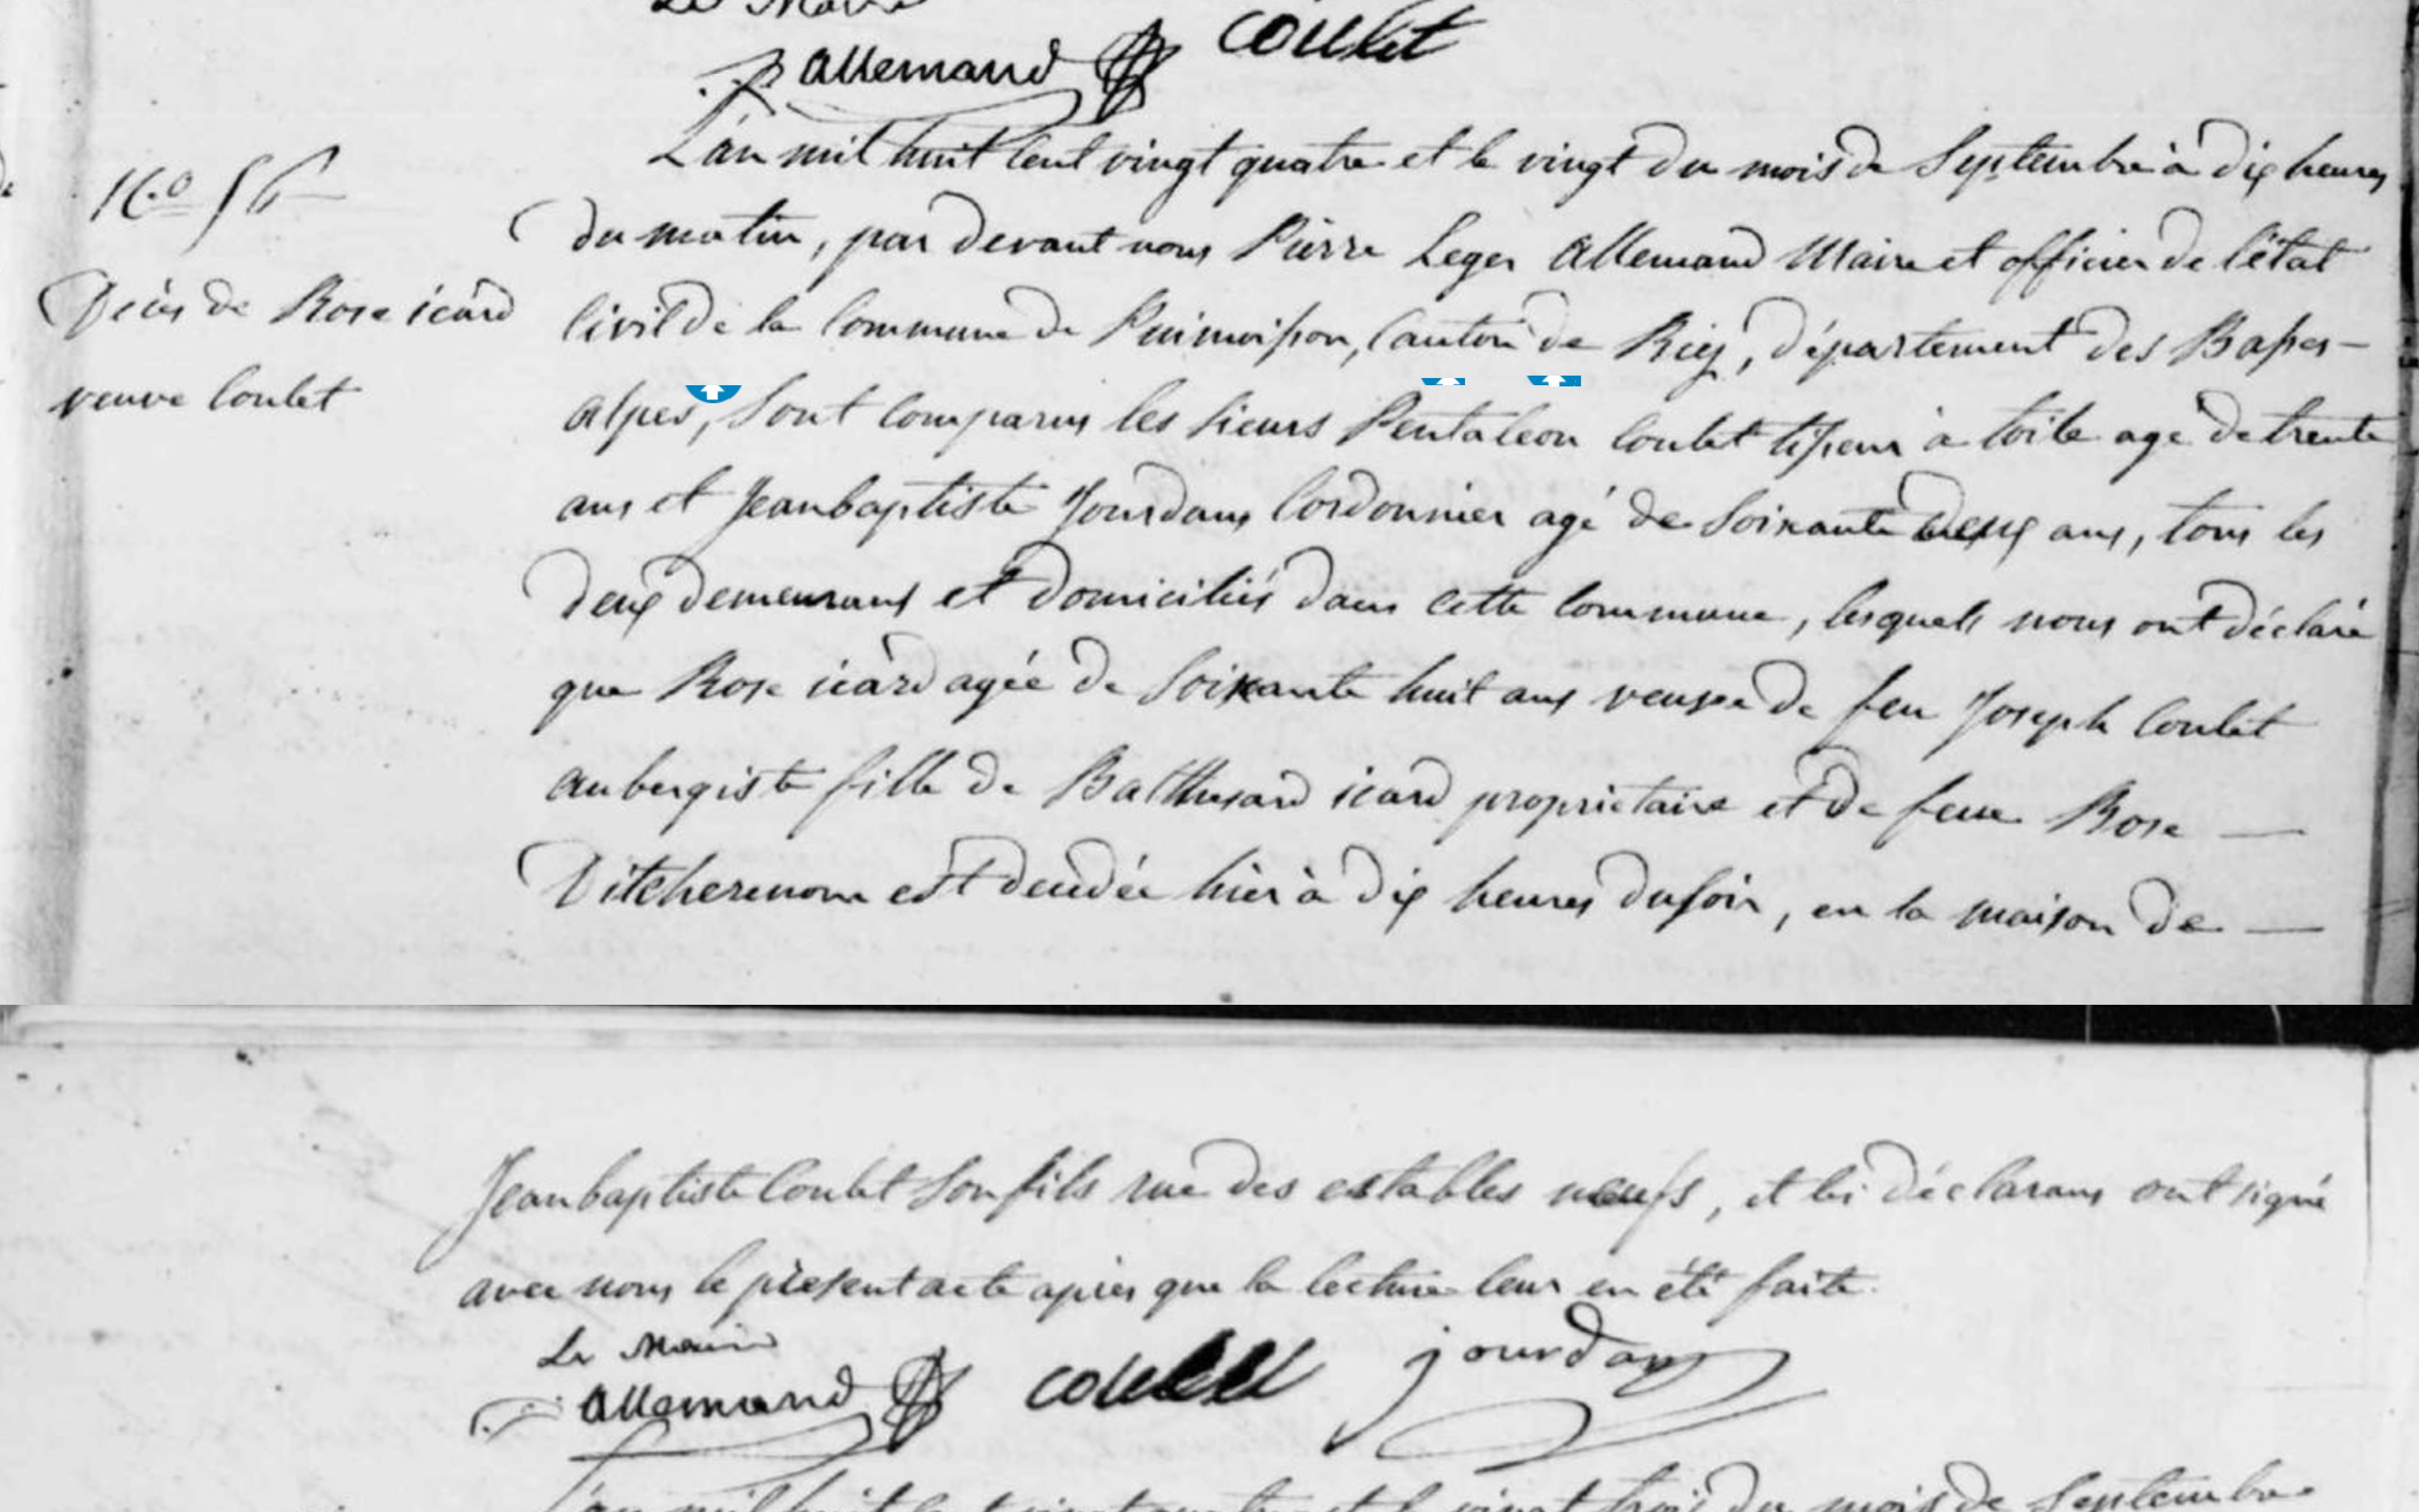 Le Maire
P Allemand Coulet
L'an mil huit cent vingt quatre et le vingt du mois de Septembre à dix heures
N.o 56
du matin, par devant nous Pierre Leger Allemand Maire et officier de l'état
Décès de Rose icard
civil de la Commune de Puimoisson, Canton de Riez, département des Basses-
veuve Coulet
alpes, sont comparus les sieurs Pentaleon Coulet tisseur a toile agé de trente
ans et Jeanbaptiste Jourdans Cordonnier agé de Soixante deux ans, tous les
deux demeurans et domiciliés dans cette Commune, lesquels nous ont déclaré
que Rose icard agée de Soixante huit ans veuve de feu Joseph Coulet
aubergiste fille de Balthesard icard proprietaire et de feue Rose —
Ditcherenom est decedée hier à dix heures du soir, en la maison de —
Jeanbaptiste Coulet son fils rue des establles neufs, et les déclarans ont signé
avec nous le présent acte après que la lecture leur en été faite.
Le Maire
Allemand Coulet jourdan
L'an mil huit cent vingt quatre et le vingt trois du mois de Septembre